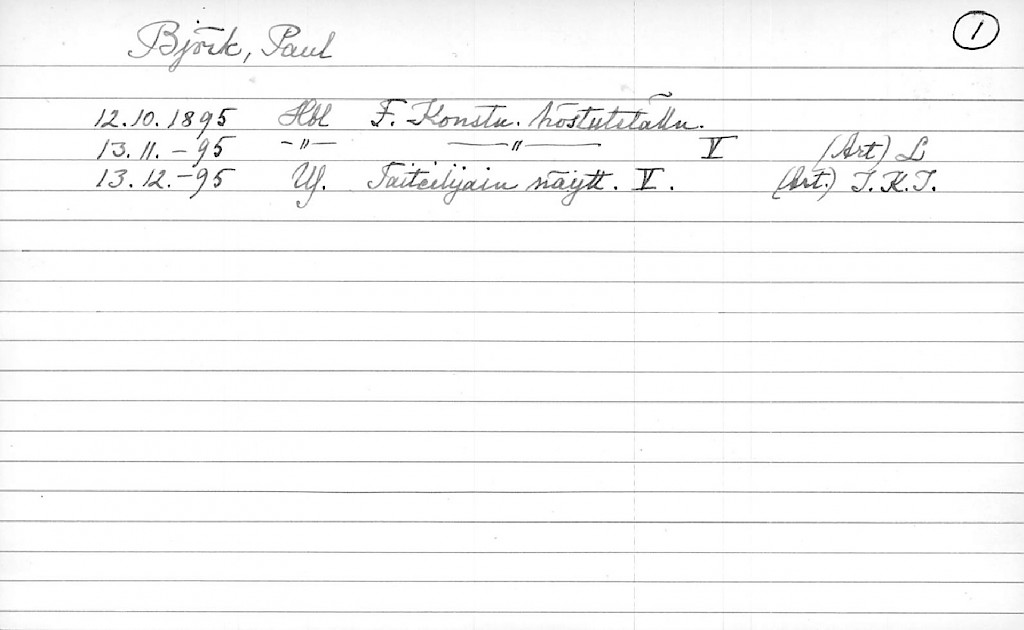 Björk, Paul ①
12.10.1895 Hbl F. Konstn. höstutställn.
13.11.-95 -"- -"- V (Art) L
13.12.-95 US. Taiteilijain näytt. V. (Art.) J.K.J.